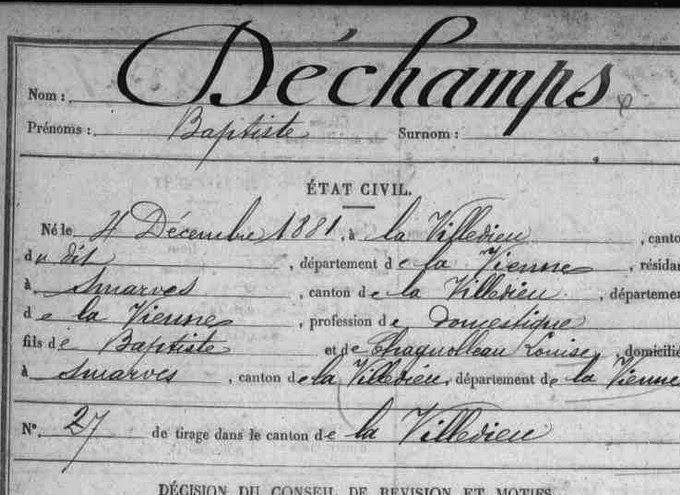 Nom : Déchamps
Prénoms : Baptiste Surnom :
ÉTAT CIVIL.
Né le 4 Décembre 1881, à la Villedieu, canto
du dit, département de la Vienne, résidan
à Smarves, canton de la Villedieu, départeme
de la Vienne, profession de domestique
fils de Baptiste et de Chagnolleau Louise, domicilié
à Smarves, canton de la Villedieu, département de la Vienne
N° 27 de tirage dans le canton de la Villedieu
DÉCISION DU CONSEIL DE REVISION ET MOTIFS